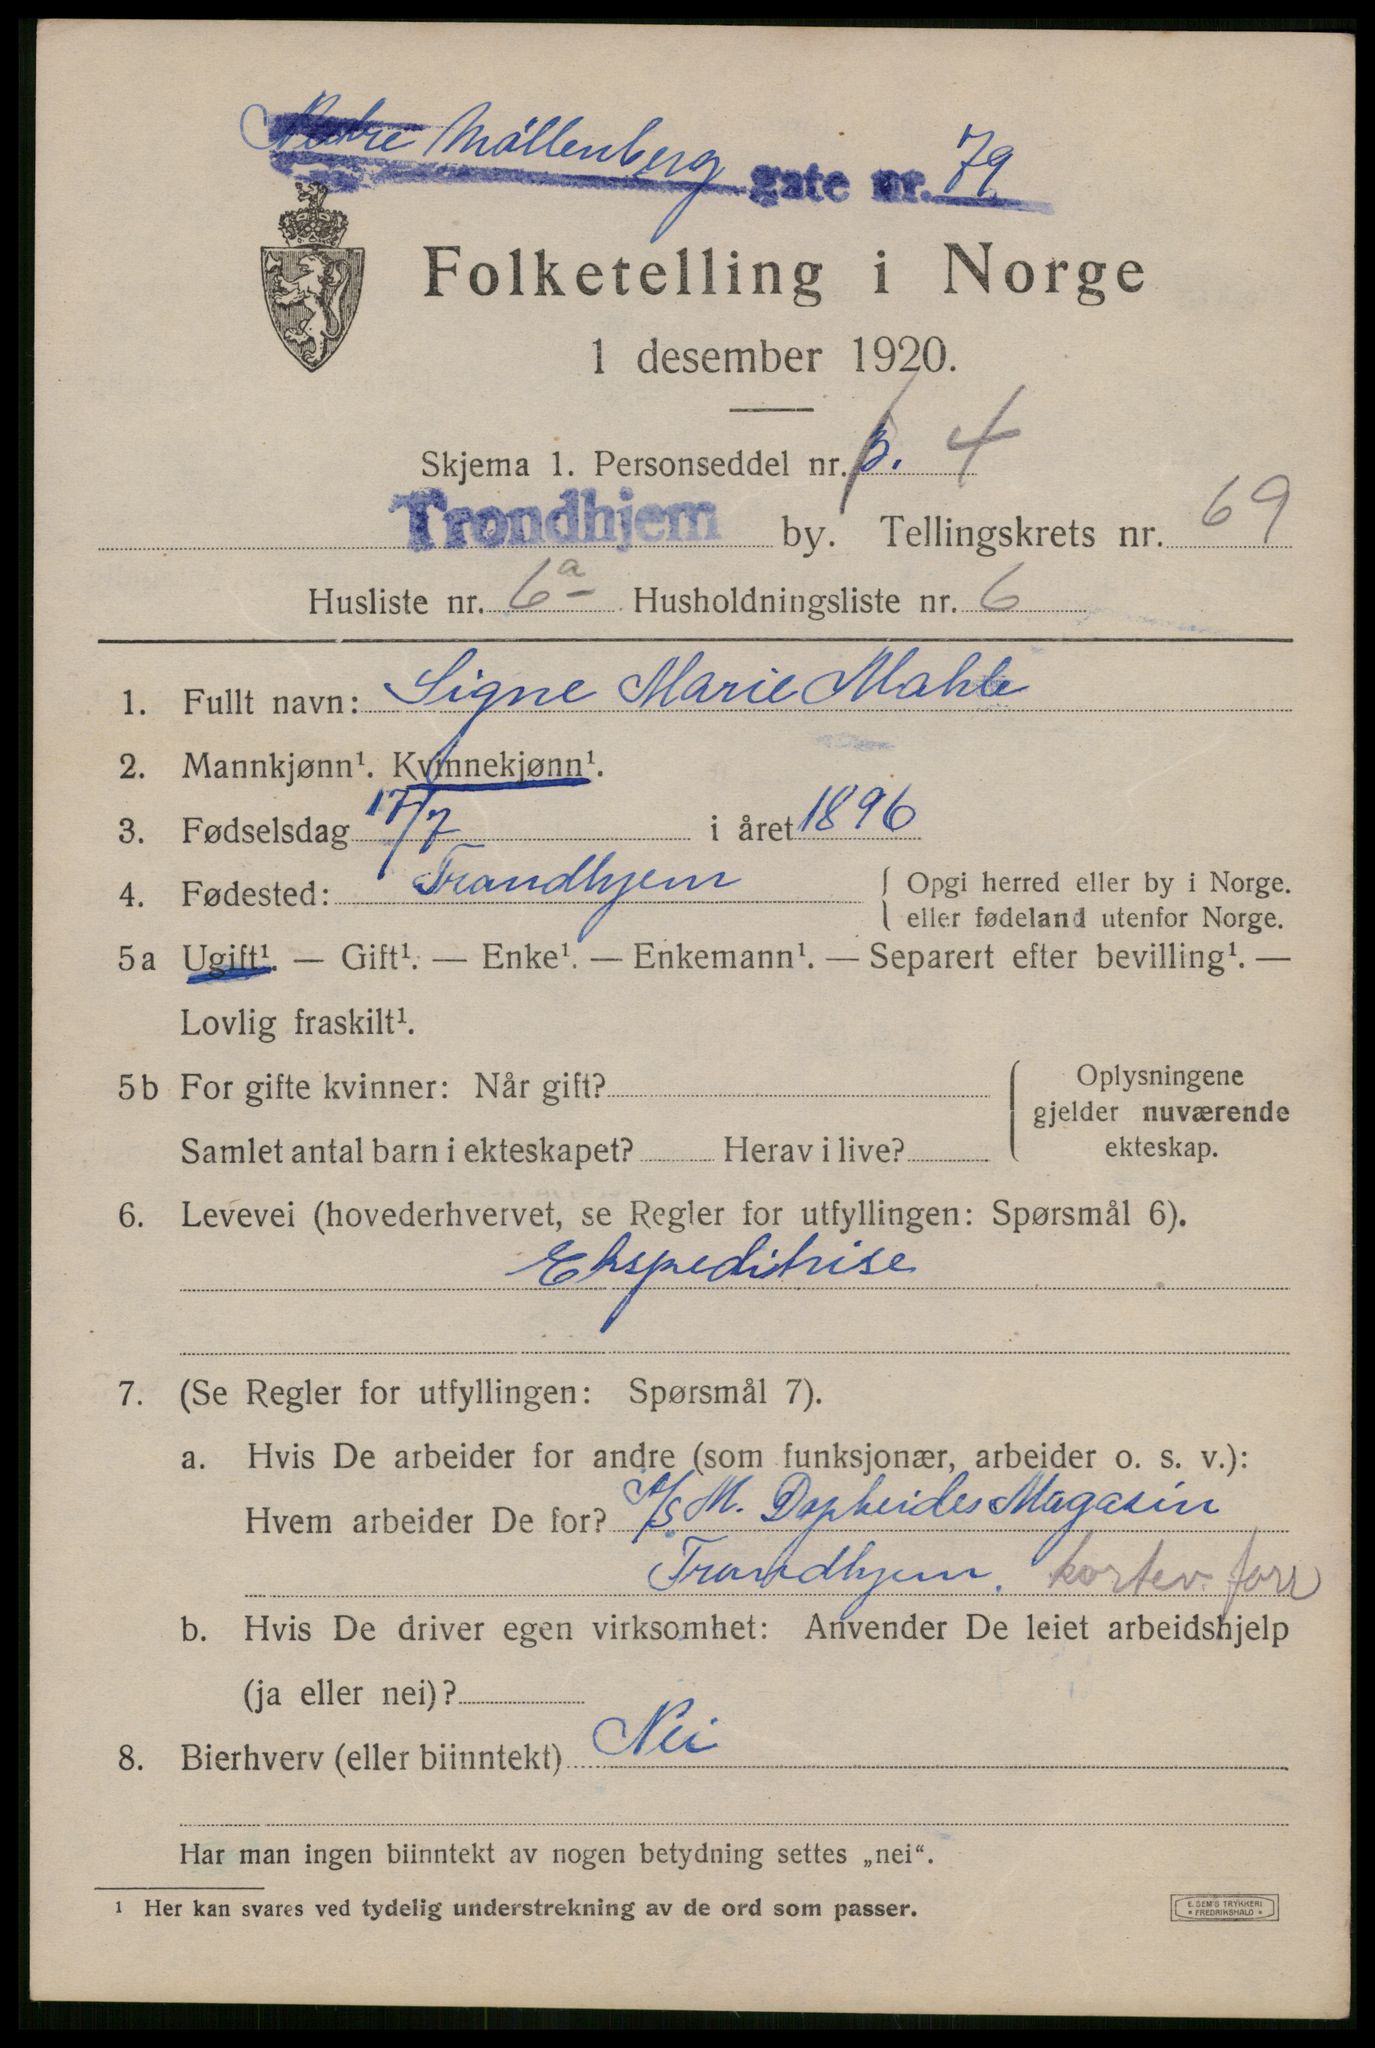 Nedre Möllenberg gate nr. 79
Folketelling i Norge
1 desember 1920.
Skjema 1. Personseddel nr. 3. 4
Trondhjem by. Tellingskrets nr. 69
Husliste nr. 6a Husholdningsliste nr. 6
1. Fullt navn: Signe Marie Mahle
2. Mannkjønn¹. Kvinnekjønn¹.
3. Fødselsdag 17/7 i året 1896
4. Fødested: Trondhjem { Opgi herred eller by i Norge.
eller fødeland utenfor Norge.
5a Ugift¹. — Gift¹. — Enke¹. — Enkemann¹. — Separert efter bevilling¹. —
Lovlig fraskilt¹.
5b For gifte kvinner: Når gift? Oplysningene
gjelder nuværende
Samlet antal barn i ekteskapet? Herav i live? ekteskap.
6. Levevei (hovederhvervet, se Regler for utfyllingen: Spørsmål 6).
Ekspeditrise
7. (Se Regler for utfyllingen: Spørsmål 7).
a. Hvis De arbeider for andre (som funksjonær, arbeider o. s. v.):
Hvem arbeider De for? A/S M. Magasin
Trondhjem. kortev. forr
b. Hvis De driver egen virksomhet: Anvender De leiet arbeidshjelp
(ja eller nei)?
8. Bierhverv (eller biinntekt) Nei
Har man ingen biinntekt av nogen betydning settes „nei".
¹ Her kan svares ved tydelig understrekning av de ord som passer.
E. SEM'S TRYKKERI
* FREDRIKSHALD *